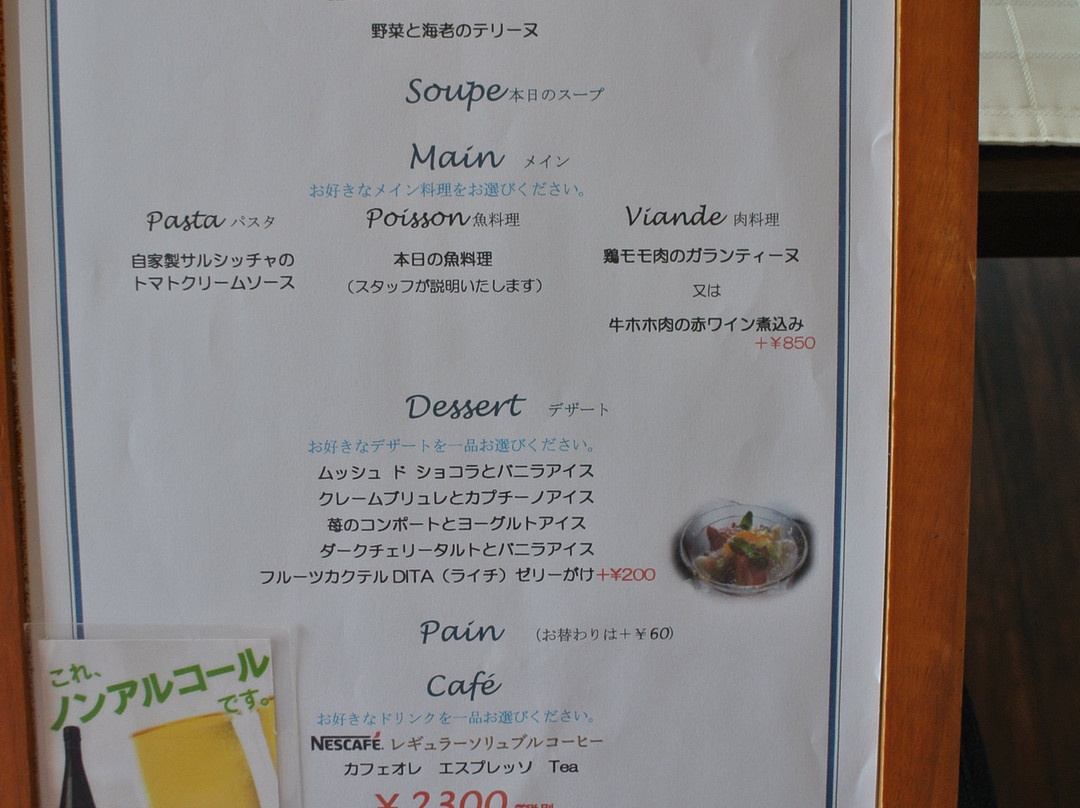 野菜と海老のテリーヌ
Soupe 本日のスープ
Main メイン
お好きなメイン料理をお選びください。
Pasta パスタ
自家製サルシッチャの
トマトクリームソース
Poisson 魚料理
本日の魚料理
(スタッフが説明いたします)
Viande 肉料理
鶏モモ肉のガランティーヌ
又は
牛ホホ肉の赤ワイン煮込み
+¥850
Dessert デザート
お好きなデザートを一品お選びください。
ムッシュ ド ショコラとバニラアイス
クレームブリュレとカプチーノアイス
苺のコンポートとヨーグルトアイス
ダークチェリータルトとバニラアイス
フルーツカクテルDITA(ライチ)ゼリーがけ+¥200
Pain (お替わりは+¥60)
Café
お好きなドリンクを一品お選びください。
NESCAFÉ. レギュラーソリュブルコーヒー
カフェオレ エスプレッソ Tea
¥2300
これ、
ノンアルコール
です。